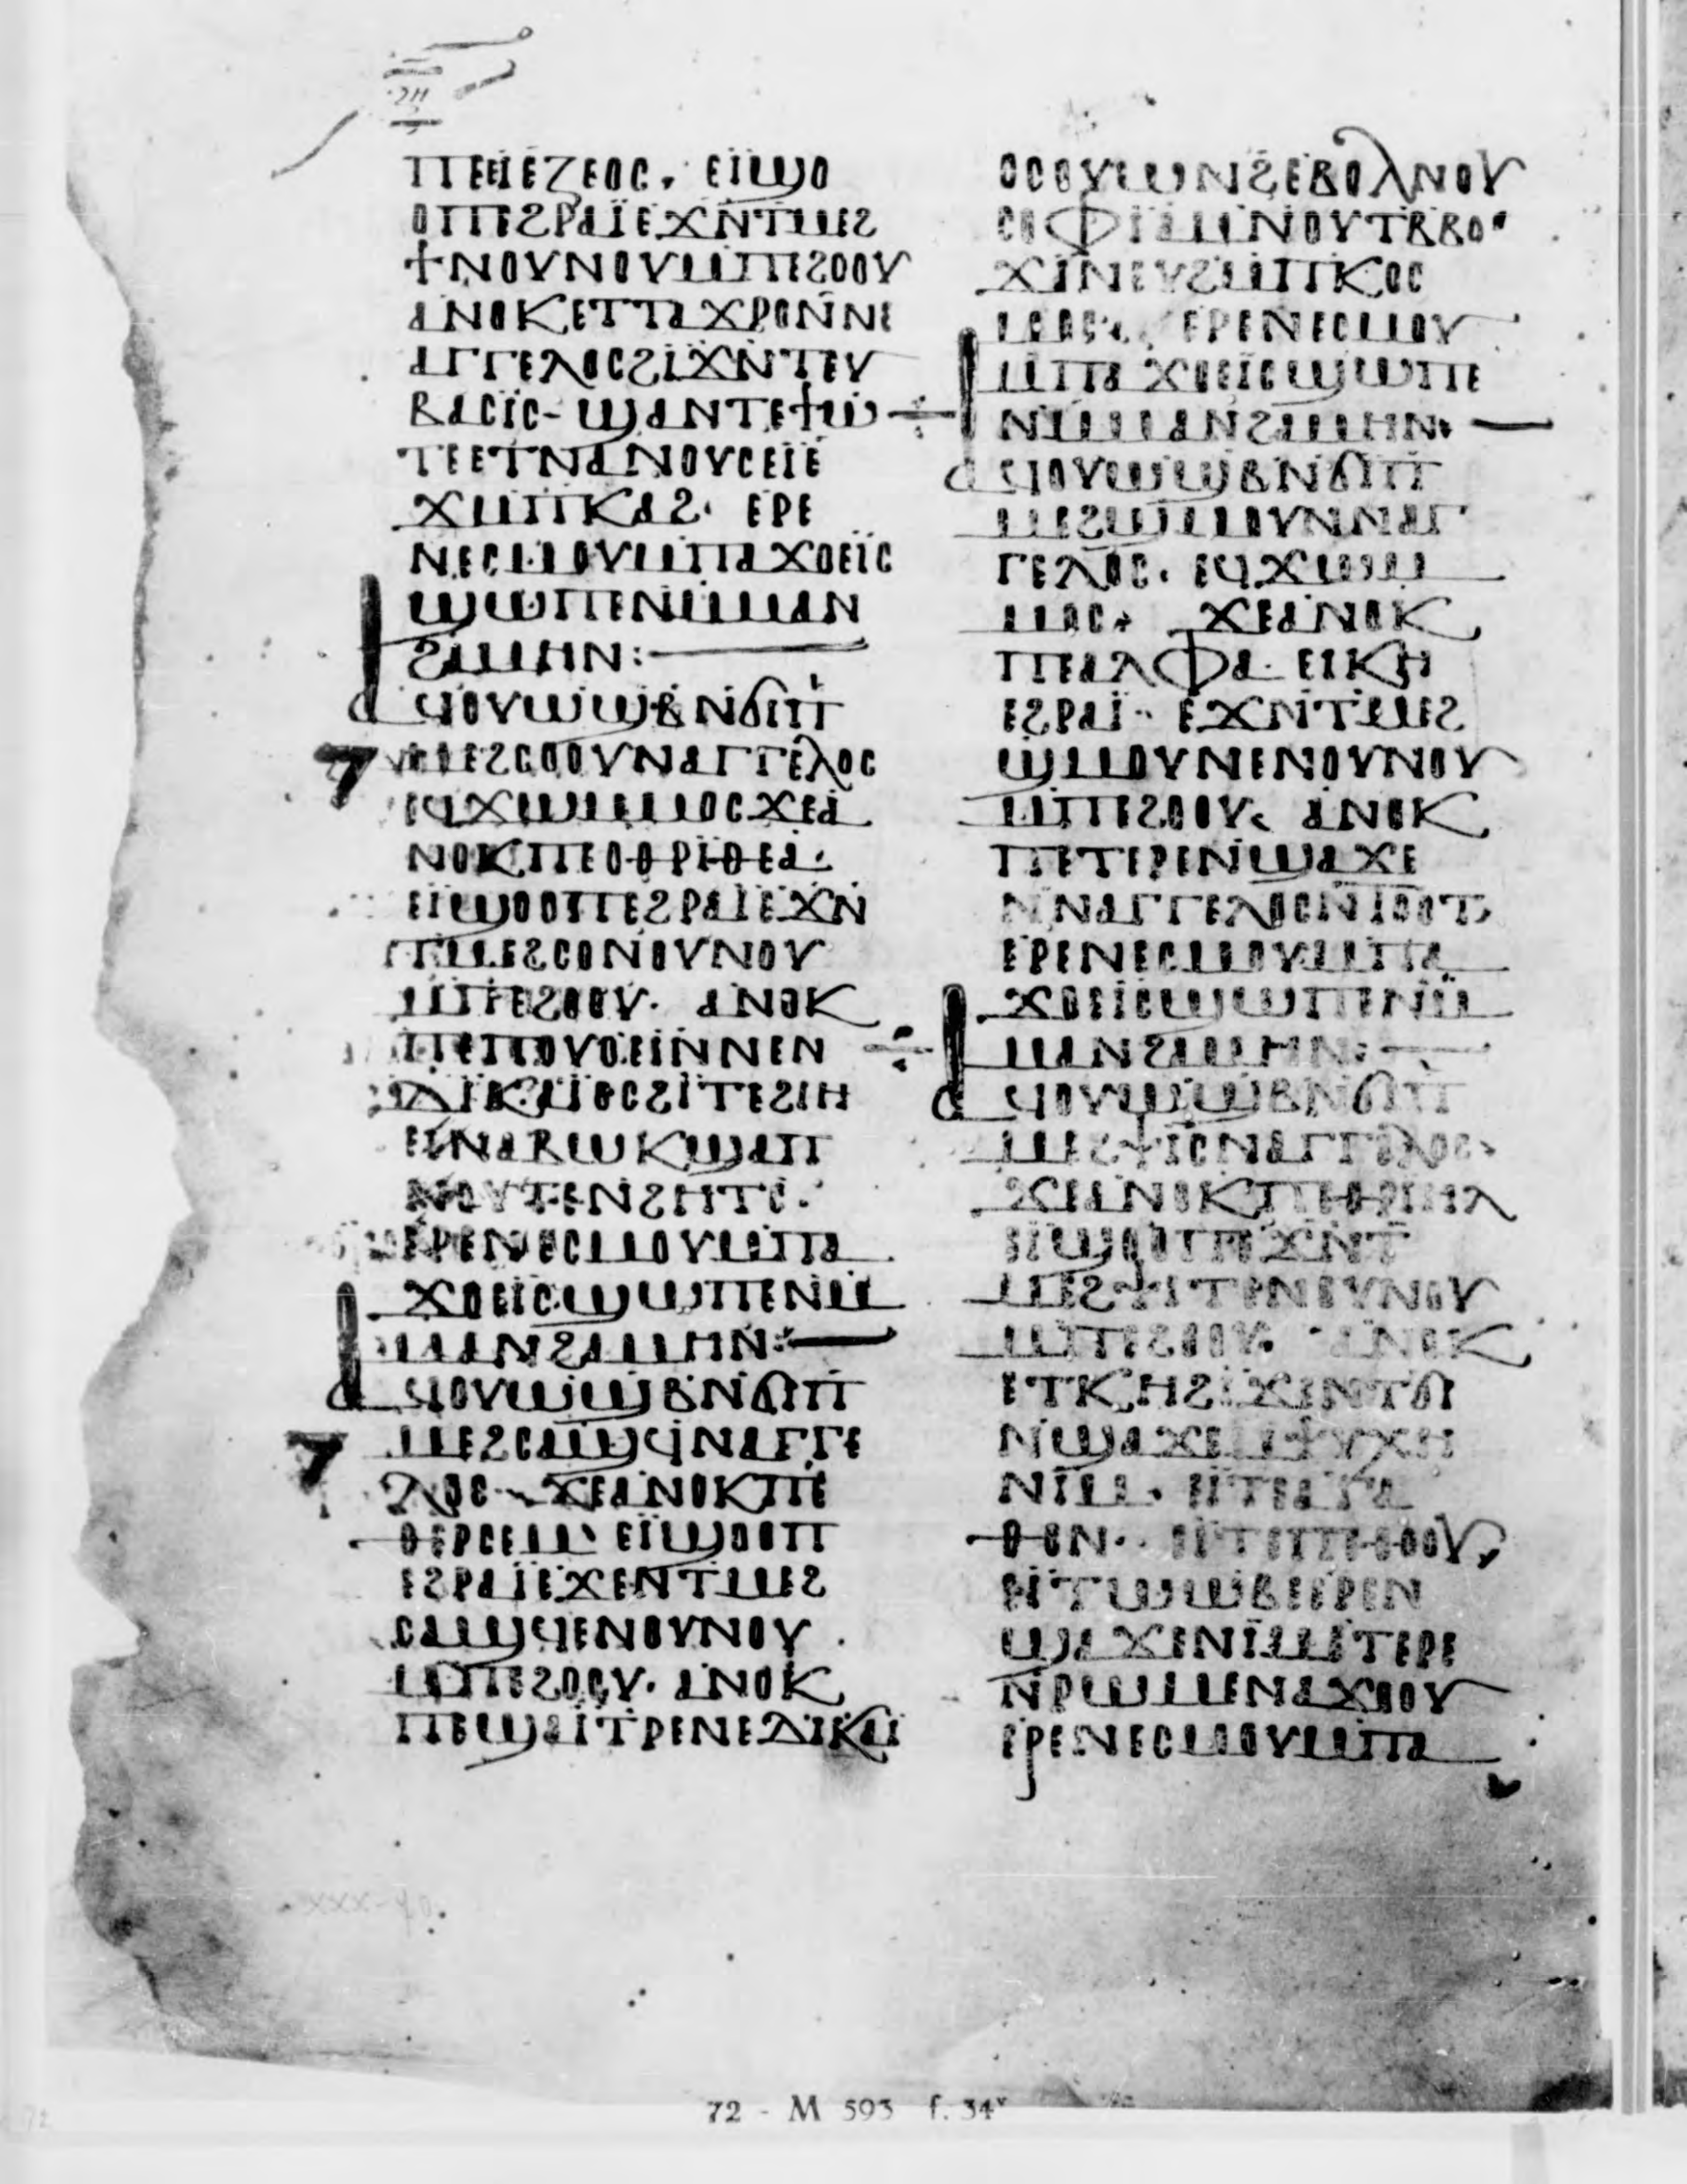 ⲡⲉⲓⲉⲍⲉⲟⲥ· ⲉⲓϣⲟ
ⲟⲡ ⲉϩⲣⲁⲓ ⲉϫⲛⲧⲙⲉϩ
ϯ ⲛⲟⲩⲛⲟⲩ ⲙⲡⲉϩⲟⲟⲩ
ⲁⲛⲟⲕ ⲉⲧⲧⲁϫⲣⲟ ⲛⲛⲉ
ⲁⲅⲅⲉⲗⲟⲥ ϩⲓϫⲛ ⲧⲉⲩ
ⲃⲁⲥⲓⲥ- ϣⲁⲛⲧⲉϯⲱ
ⲧⲉⲉⲧⲛⲁⲛⲟⲩⲥ ⲉⲓⲉ
ϫⲙ ⲡⲕⲁϩ· ⲉⲣⲉ
ⲛⲉⲥⲙⲟⲩ ⲙⲡⲁϫⲟⲉⲓⲥ
ϣⲱⲡⲉ ⲛⲙⲙⲁⲛ
ϩⲁⲙⲏⲛ:
ⲁϥⲟⲩⲱϣⲃ ⲛϭⲓ ⲡ
ⲙⲉϩⲥⲟⲟⲩ ⲛⲁⲅⲅⲉⲗⲟⲥ
ⲉϥϫⲱ ⲙⲙⲟⲥ ϫⲉ ⲁ
ⲛⲟⲕ ⲡⲉ ⲟⲑⲣⲓⲑⲉⲁ·
ⲉⲓϣⲟⲟⲡ ⲉϩⲣⲁⲓ ⲉϫⲛ
ⲧⲙⲉϩⲥⲟ ⲛⲟⲩⲛⲟⲩ
ⲙⲡⲉϩⲟⲟⲩ· ⲁⲛⲟⲕ
ⲡⲉ ⲡⲟⲩⲟⲉⲓⲛ ⲛⲛⲉⲛ
ⲇⲓⲕⲁⲓⲟⲥ ϩⲓ ⲧⲉϩⲓⲏ
ⲉⲓⲛⲁⲃⲱⲕ ϣⲁ ⲡ
ⲛⲟⲩⲧⲉ ⲛϩⲏⲧⲥ·
ⲉⲣⲉ ⲛⲉⲥⲙⲟⲩ ⲙⲡⲁ
ϫⲟⲉⲓⲥ ϣⲱⲡⲉ ⲛⲙ
ⲙⲁⲛ ϩⲁⲙⲏⲛ:
ⲁϥⲟⲩⲱϣⲃ ⲛϭⲓ ⲡ
ⲙⲉϩⲥⲁϣϥ ⲛⲁⲅⲅⲉ
ⲗⲟⲥ· ϫⲉ ⲁⲛⲟⲕ ⲡⲉ
ⲑⲉⲣⲥⲉⲙ· ⲉⲓϣⲟⲟⲡ
ⲉϩⲣⲁⲓ ⲉϫⲉⲛ ⲧⲙⲉϩ
ⲥⲁϣϥⲉ ⲛⲟⲩⲛⲟⲩ
ⲙⲡⲉϩⲟⲟⲩ· ⲁⲛⲟⲕ
ⲡⲉϣⲁⲓⲧⲣⲉ ⲛⲉⲇⲓⲕⲁⲓ
ⲟⲥ ⲟⲩⲱⲛϩ ⲉⲃⲟⲗ ⲛⲟⲩ
ⲥⲟⲫⲓⲁ ⲙⲛ ⲟⲩⲧⲃⲃⲟ·
ϫⲓⲛ ⲉⲩϩⲙ ⲡⲕⲟⲥ
ⲙⲟⲥ· ⲉⲣⲉ ⲛⲉⲥⲙⲟⲩ
ⲙⲡⲁϫⲟⲉⲓⲥ ϣⲱⲡⲉ
ⲛⲙⲙⲁⲛ ϩⲁⲙⲏⲛ·
ⲁϥⲟⲩⲱϣⲃ ⲛϭⲓ ⲡ
ⲙⲉϩϣⲙⲟⲩⲛ ⲛⲁⲅ
ⲅⲉⲗⲟⲥ· ⲉϥϫⲱ ⲙ
ⲙⲟⲥ· ϫⲉ ⲁⲛⲟⲕ
ⲡⲉ ⲁⲗⲫⲁ· ⲉⲓⲕⲏ
ⲉϩⲣⲁⲓ· ⲉϫⲛ ⲧⲙⲉϩ
ϣⲙⲟⲩⲛⲉ ⲛⲟⲩⲛⲟⲩ
ⲙⲡⲉϩⲟⲟⲩ· ⲁⲛⲟⲕ
ⲡⲉⲧⲉⲓⲣⲉ ⲛϣⲁϫⲉ
ⲛⲛⲁⲅⲅⲉⲗⲟⲥ ⲛⲓⲟⲟⲧ
ⲉⲣⲉ ⲛⲉⲥⲙⲟⲩ ⲙⲡⲁ
ϫⲟⲉⲓⲥ ϣⲱⲡⲉ ⲛⲙ
ⲙⲁⲛ ϩⲁⲙⲏⲛ:
ⲁϥⲟⲩⲱϣⲃ ⲛϭⲓ ⲡ
ⲙⲉϩⲯⲓⲥ ⲛⲁⲅⲅⲉⲗⲟⲥ·
ϫⲉ ⲁⲛⲟⲕ ⲡⲉ
ⲉⲓϣⲟⲟⲡ ⲉϫⲛ ⲧ
ⲙⲉϩⲯⲓⲧⲉ ⲛⲟⲩⲛⲟⲩ
ⲙⲡⲉϩⲟⲟⲩ· ⲁⲛⲟⲕ
ⲉⲧⲕⲏ ϩⲓϫⲛ ⲧϭⲓ
ⲛϣⲁϫⲉ ⲙⲯⲩⲭⲏ
ⲛⲓⲙ· ⲉⲓⲧⲉ ⲁⲅⲁ
ⲑⲟⲛ· ⲉⲓⲧⲉ ⲡⲉⲑⲟⲟⲩ,
ⲉⲓⲧⲱⲱⲃⲉ ⲉⲣⲉⲛ
ϣⲁϫⲉ ⲛⲓⲙ ⲉⲧⲉⲣⲉ
ⲛⲣⲱⲙⲉ ⲛⲁϫⲟⲟⲩ
ⲉⲣⲉ ⲛⲉⲥⲙⲟⲩ ⲙⲡⲁ
72 - M 593 f. 34ᵛ